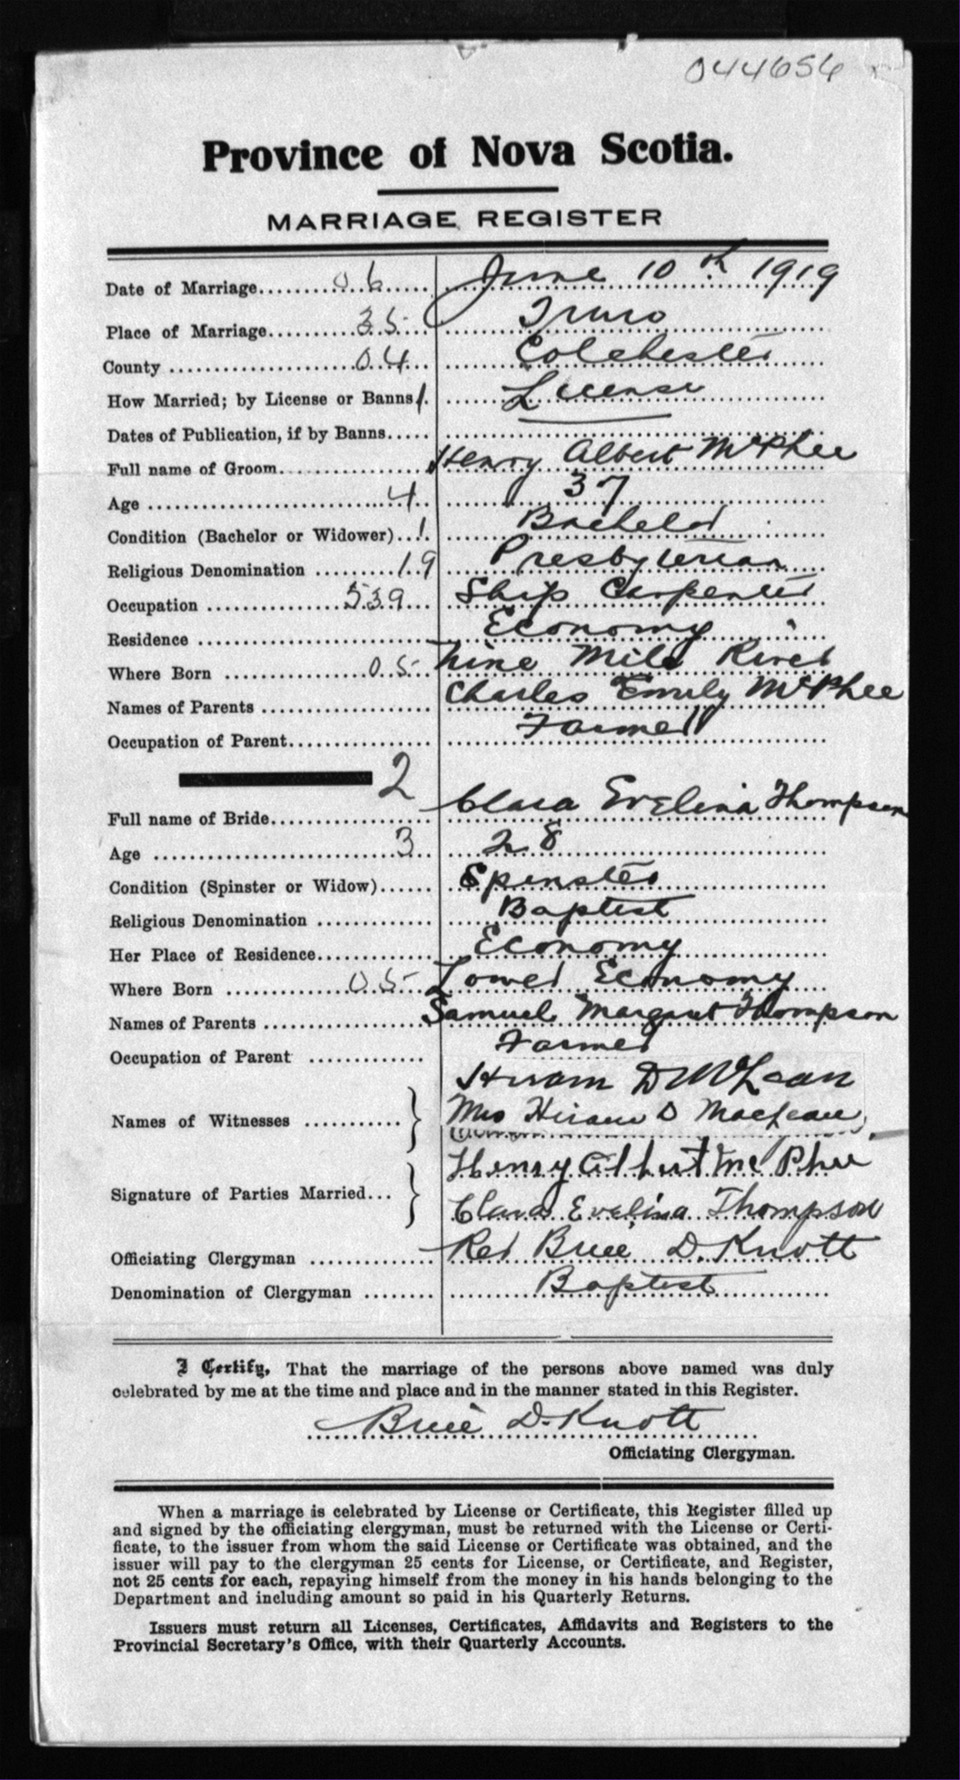 044656
Province of Nova Scotia.
MARRIAGE REGISTER
Date of Marriage 06 June 10th 1919
Place of Marriage 35 Truro
County 04 Colchester
How Married; by License or Banns 1 License
Dates of Publication, if by Banns
Full name of Groom Henry Albert McPhee
Age 4 37
Condition (Bachelor or Widower) 1 Bachelor
Religious Denomination 19 Presbyterian
Occupation 539 Ship Carpenter
Residence Economy
Where Born 05 Nine Mile River
Names of Parents Charles Emily McPhee
Occupation of Parent Farmer
2
Full name of Bride Clara Evelina Thompson
Age 3 28
Condition (Spinster or Widow) Spinster
Religious Denomination Baptist
Her Place of Residence Economy
Where Born 05 Lower Economy
Names of Parents Samuel Margaret Thompson
Occupation of Parent Farmer
Hiram D McLean
Names of Witnesses Mrs Hiram D MacLean
Henry Albert Mc Phee
Signature of Parties Married
Clara Evelina Thompson
Officiating Clergyman Rev Brice D. Knott
Denomination of Clergyman Baptist
I Certify, That the marriage of the persons above named was duly
celebrated by me at the time and place and in the manner stated in this Register.
Brice D. Knott
Officiating Clergyman.
When a marriage is celebrated by License or Certificate, this Register filled up
and signed by the officiating clergyman, must be returned with the License or Certi-
ficate, to the issuer from whom the said License or Certificate was obtained, and the
issuer will pay to the clergyman 25 cents for License, or Certificate, and Register,
not 25 cents for each, repaying himself from the money in his hands belonging to the
Department and including amount so paid in his Quarterly Returns.
Issuers must return all Licenses, Certificates, Affidavits and Registers to the
Provincial Secretary's Office, with their Quarterly Accounts.